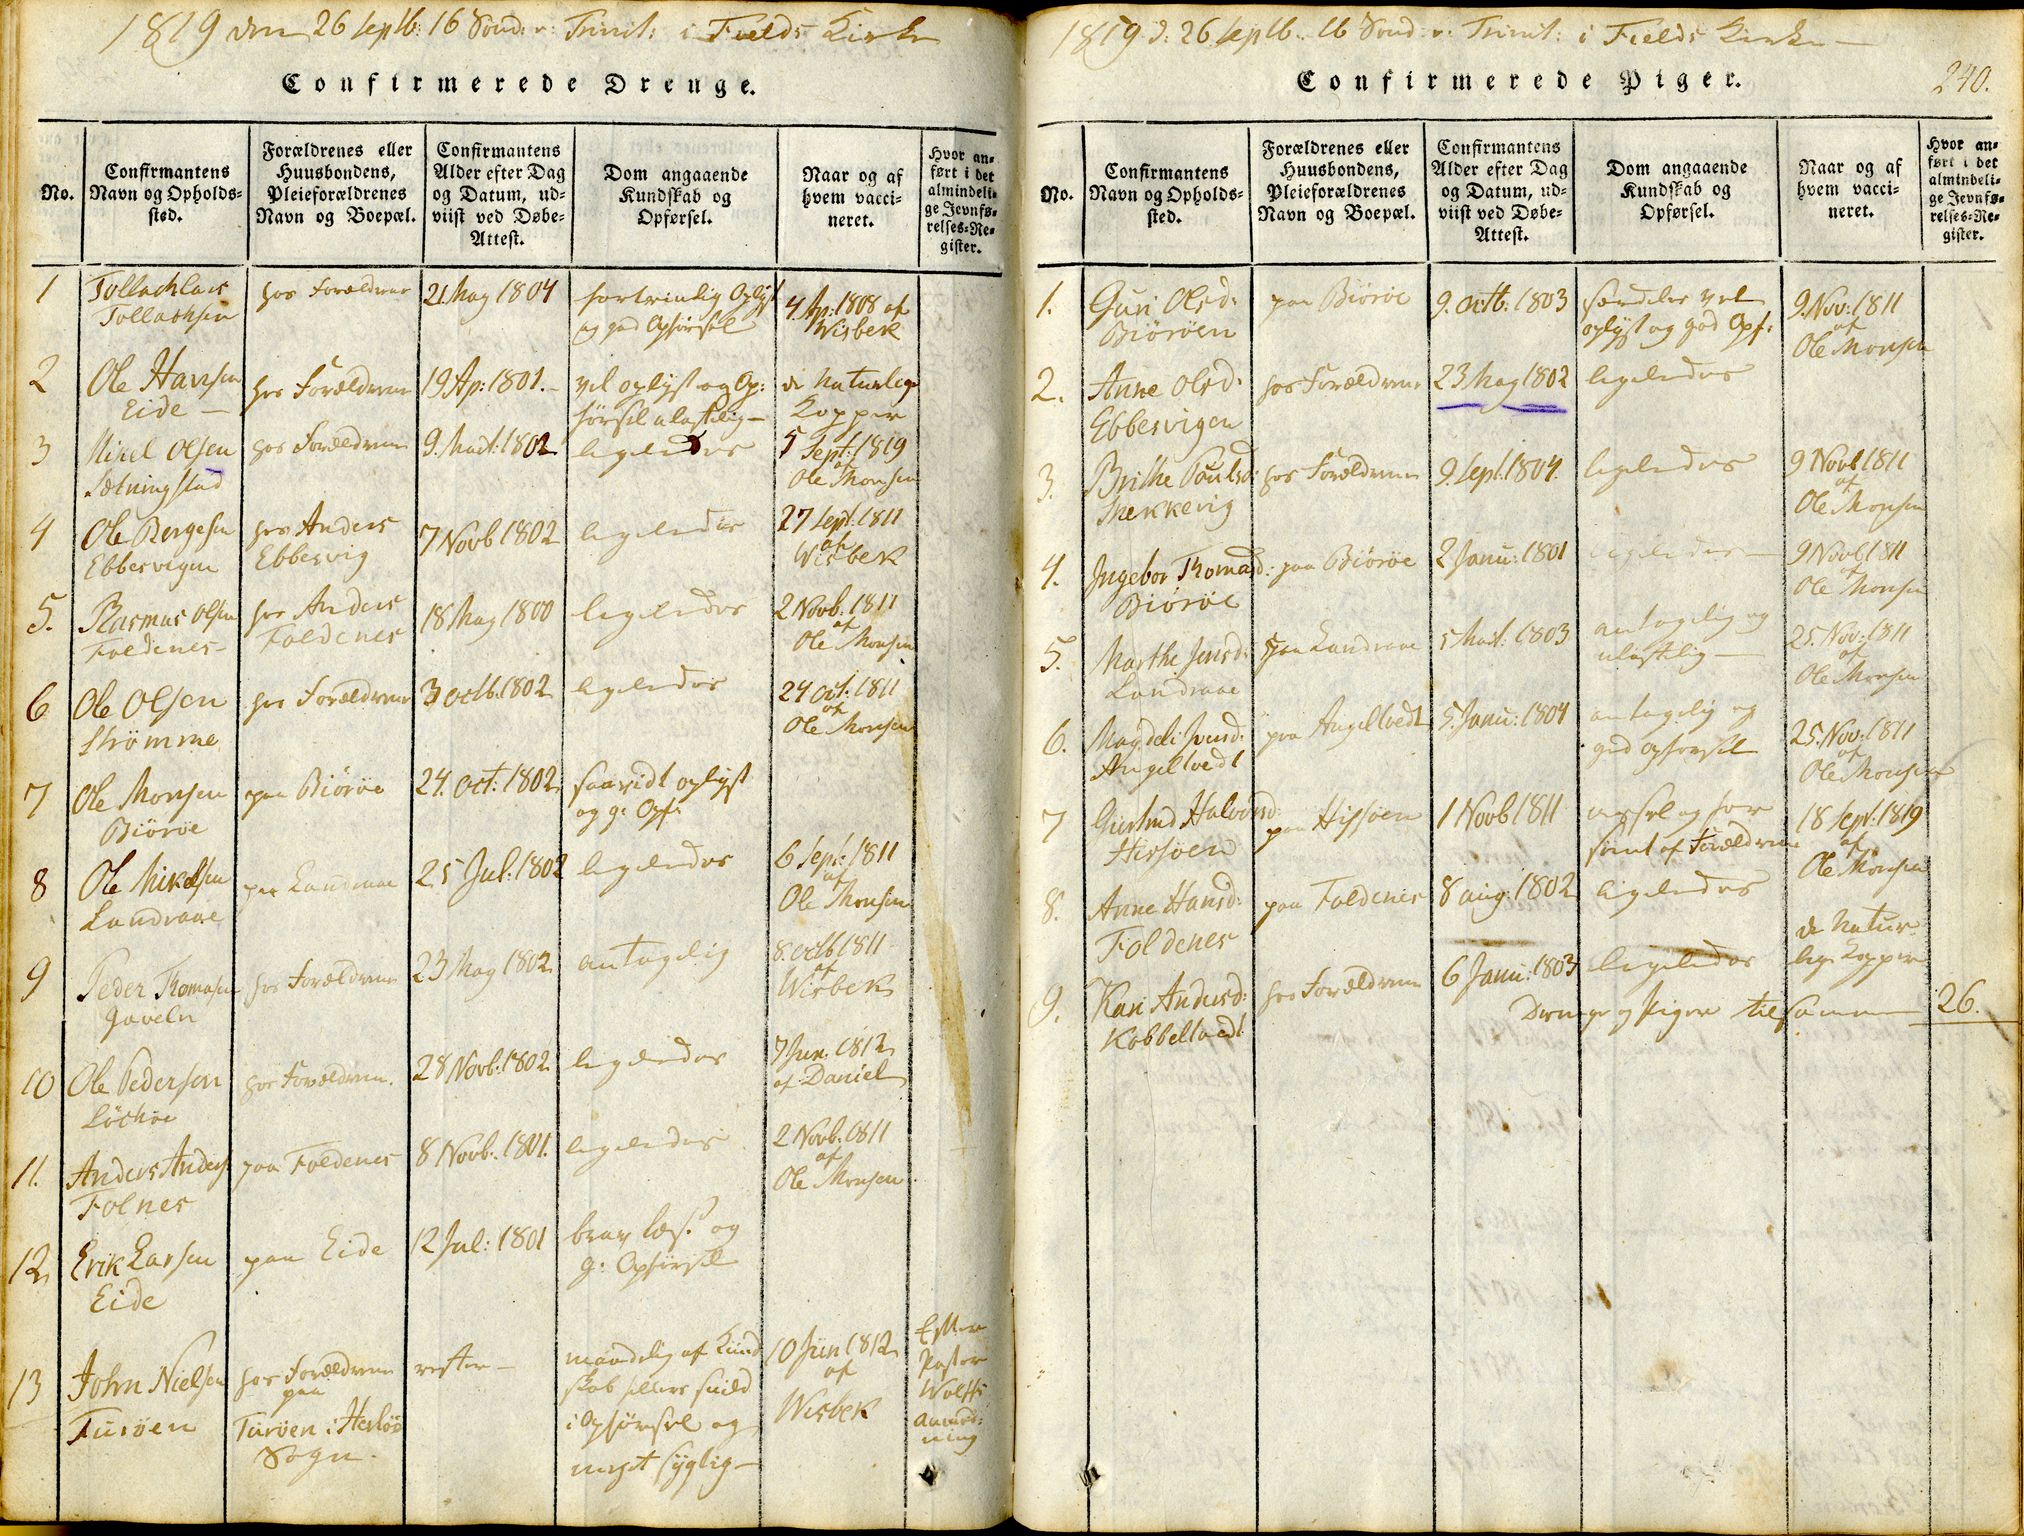 1819 den 26 Septb: 16 Sönd: v: Trinit: i Fields Kirke
Confirmerede Drenge.
No.
Confirmantens
Navn og Opholds-
sted.
Forældrenes eller
Huusbondens,
Pleieforældrenes
Navn og Boepæl.
Confirmantens
Alder efter Dag
og Datum, ud-
viist ved Døbe-
Attest.
Dom angaaende
Kundskab og
Opførsel.
Naar og af
hvem vacci-
neret.
Hvor an-
ført i det
almindeli-
ge Jevnfø-
relses-Re-
gister.
1
Tollachlais
Tollachsen
hos Forældrene
21 May 1804
fortrinlig Oplyst
og god Opførsel
4 Ap: 1808 af
Wisbek
2
Ole Hansen
Eide
hos Forældrene
19 Ap: 1801.
vel oplyst og Op:
førsel ulastelig
de naturlige
Kopper
3
Mikel Olsen
Sætningstad
hos Forældrene
9. Mart: 1802
ligeledes
5 Sept: 1819
af
Ole Monsen
4
Ole Bergesen
Ebbesvigen
hos Anders
Ebbesvig
7 Novb 1802
ligeledes
27 Sept: 1811
af
Wisbek
5.
Rasmus Olsen
Foldenes
hos Anders
Foldenes
18 May 1800
ligeledes
2 Novb: 1811
af
Ole Monsen
6
Ole Olsen
Strömme
hos Forældrene
3 Octb: 1802
ligeledes
24 Oct: 1811
af
Ole Monsen
7
Ole Monsen
Biöröe
paa Biöröe
24. Oct: 1802
saavidt oplyst
og g: Opf:
8
Ole Mikelsen
Landraae
paa Landraae
25 Jul: 1802
ligeledes
6 Sept: 1811
af
Ole Monsen
9
Peder Thomasen
Gaveln
hos Forældrene
23 May 1802
antagelig
8. Octb 1811
af
Wisbek
10
Ole Pedersen
hos Forældrene.
28 Novb: 1802
ligeledes
7 Jun: 1812
af Daniel
11.
Anders Anders:
Folnes
paa Foldenes
8 Novb: 1801.
ligeledes
2 Novb: 1811
af
Ole Monsen
12
Erik Larsen
Eide
paa Eide
12 Jul: 1801
brav læs: og
g: Opförsel
13
John Nielsen
Turöen
hos Forældrene
paa
Turöen i Herlöe
Sogn.
maadelig af Kund
skab
i Opførsel og
meget syglig
10 Jun 1812
af
Wisbek
Efter
Pastor
Wolffs
anmod:
ning
1819 d: 26 Septb. 16 Sönd: v: Trinit: i Fields Kirke
Confirmerede Piger.
240.
No.
Confirmantens
Navn og Opholds-
sted.
Forældrenes eller
Huusbondens,
Pleieforældrenes
Navn og Boepæl.
Confirmantens
Alder efter Dag
og Datum, ud-
viist ved Døbe-
Attest.
Dom angaaende
Kundskab og
Opførsel.
Naar og af
hvem vacci-
neret.
Hvor an-
ført i det
almindeli-
ge Jevnfø-
relses-Re-
gister.
1.
Guri Olsd:
Biöröen
paa Biöröe
9. Octb: 1803
særdeles vel
oplyst og god Opf:
9. Nov: 1811
af
Ole Monsen
2.
Anne Olsd:
Ebbesvigen
hos Forældrene
23 May 1802
ligeledes
3.
Brithe Poulsd:
Snekkevig
hos Forældrene
9. Sept: 1804.
ligeledes
9 Novb 1811
af
Ole Monsen
4.
Ingebor Thomasd:
Biöröe
paa Biöröe
2 Janu: 1801
ligeledes
9 Novb 1811
af
Ole Monsen
5.
Marthe Jensd:
Landraae
paa Landraae
5 Mart: 1803
antagelig og
ulastelig
25. Nov: 1811
af
Ole Monsen
6.
Magdeli Iversd:
Angeltvedt
paa Angeltvedt
5. Janu: 1804
antagelig og
god opførsel
25. Nov: 1811
af
Ole Monsen
7
Giertrud Halvorsd:
Hissöen
paa Hissöen
1 Novb 1811
ussel og for
sömt af Forældrene
18 Sept: 1819
af
Ole Monsen
8.
Anne Hansd:
Foldenes
paa Foldenes
8 aug: 1802
ligeledes
de natur
lige Kopper
9.
Kari Andersd:
Kobbeltvedt
hos Forældrene
6 Janu: 1803
ligeledes
Drenge og Piger tilsammen 26.